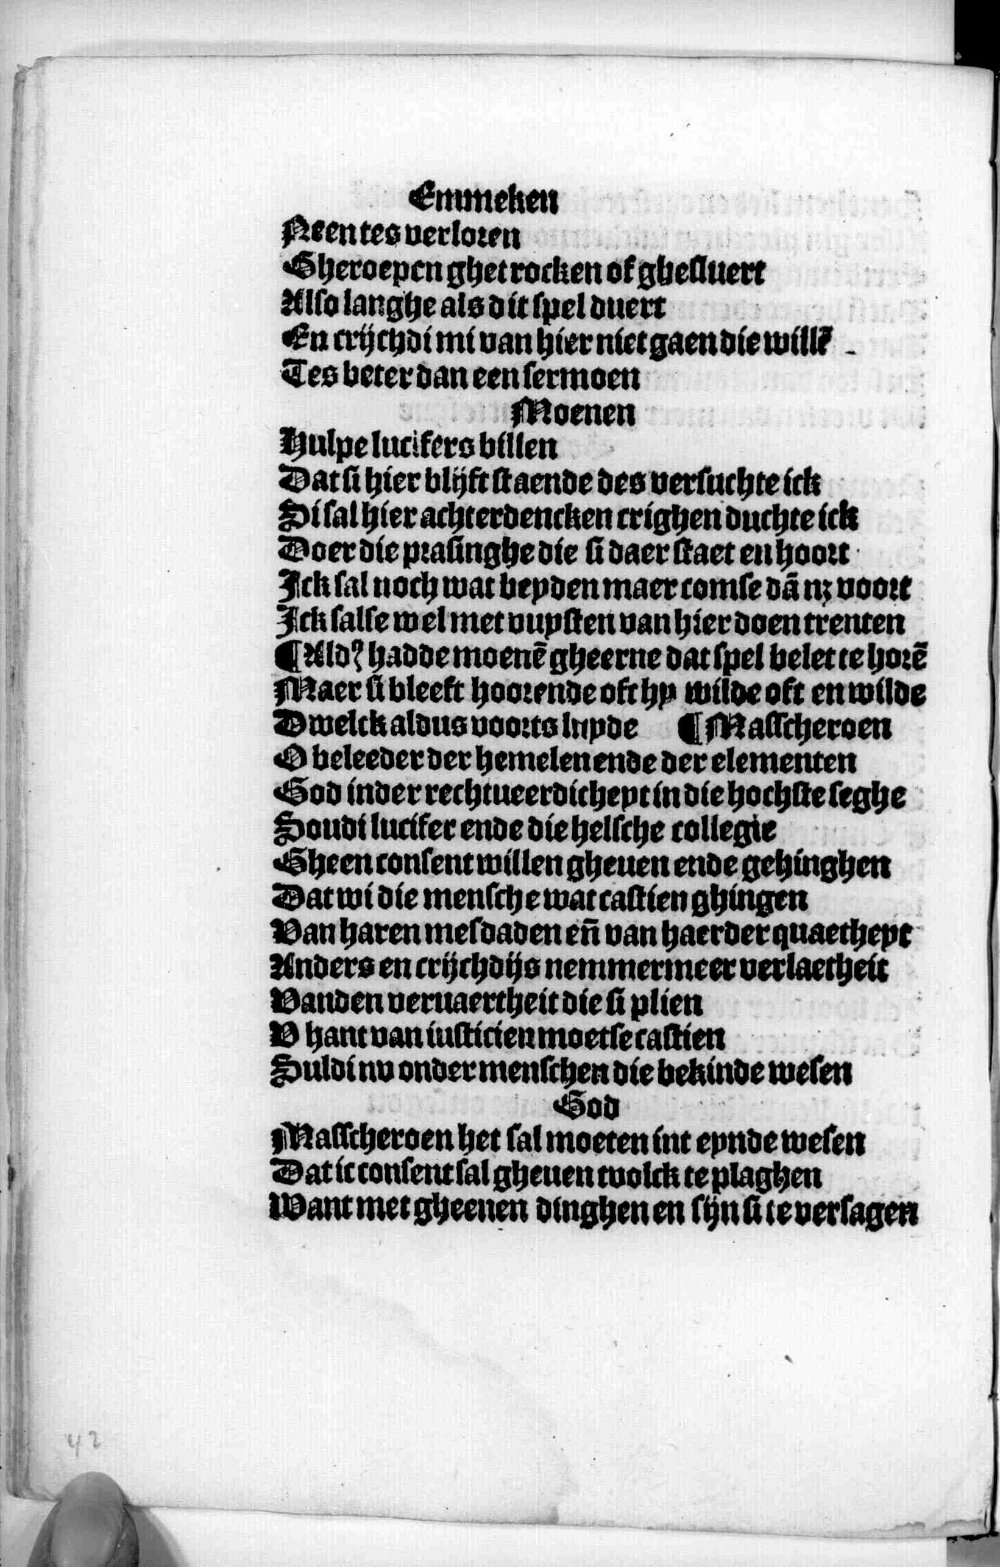 Emmeken
Neen tes verloren
Gheroepen ghetrocken of ghesluert
Also langhe als dit spel duert
En crijchdi mi van hier niet gaen die willē
Tes beter dan een sermoen
Moenen
Hulpe lucifers billen
Dat si hier blijft staende des versuchte ick
Si sal hier achterdencken crighen duchte ick
Doer die prasinghe die si daer staet en hoort
Ick sal noch wat beyden maer comse dā nꝫ voort
Ick salse wel met vuysten van hier doen trenten
¶ Aldꝰ hadde moenē gheerne dat spel belet te horē
Maer si bleeft hoorende oft hy wilde oft en wilde
Dwelck aldus voorts luyde ¶ Masscheroen
O beleeder der hemelen ende der elementen
God inder rechtueerdicheyt in die hochste seghe
Soudi lucifer ende die helsche collegie
Gheen consent willen gheuen ende gehinghen
Dat wi die mensche wat castien ghingen
Van haren mesdaden en̄ van haerder quaetheyt
Anders en crijchdijs nemmermeer verlaetheit
Vanden veruaertheit die si plien
V hant van iusticien moetse castien
Suldi nv onder menschen die bekinde wesen
God
Masscheroen het sal moeten int eynde wesen
Dat ic consent sal gheuen tvolck te plaghen
Want met gheenen dinghen en sijn si te versagen
42